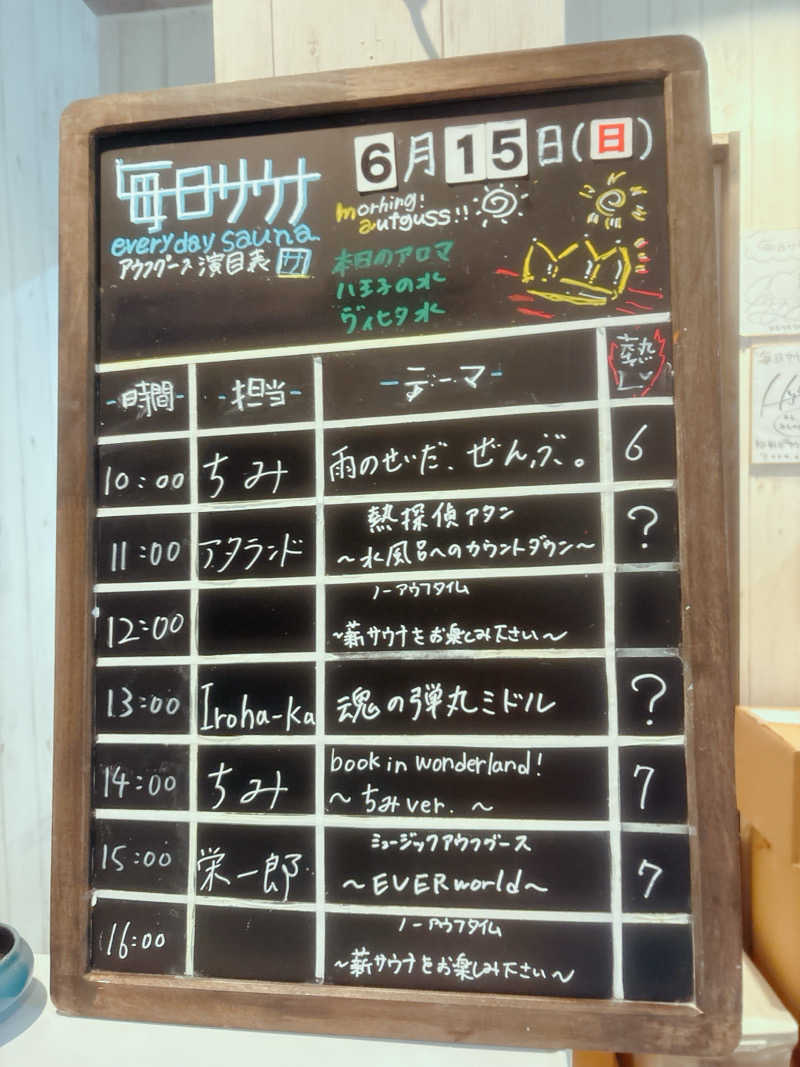 毎日サウナ
everyday sauna
アウフグース演目表 サ
6月15日(日)
morning!
aufguss!!
本日のアロマ
八王子の水
ヴィヒタ水
時間 担当 テーマ 熱
10:00 ちみ 雨のせいだ、ぜんぶ、。 6
11:00 アタランド 熱探偵アタン
〜水風呂へのカウントダウン〜 ?
12:00 ノーアウフタイム
〜薪サウナをお楽しみ下さい〜
13:00 Iroha-ka 魂の弾丸ミドル ?
14:00 ちみ book in wonderland!
〜ちみver.〜 7
15:00 栄一郎 ミュージックアウフグース
〜EVERworld〜 7
16:00 ノーアウフタイム
〜薪サウナをお楽しみ下さい〜